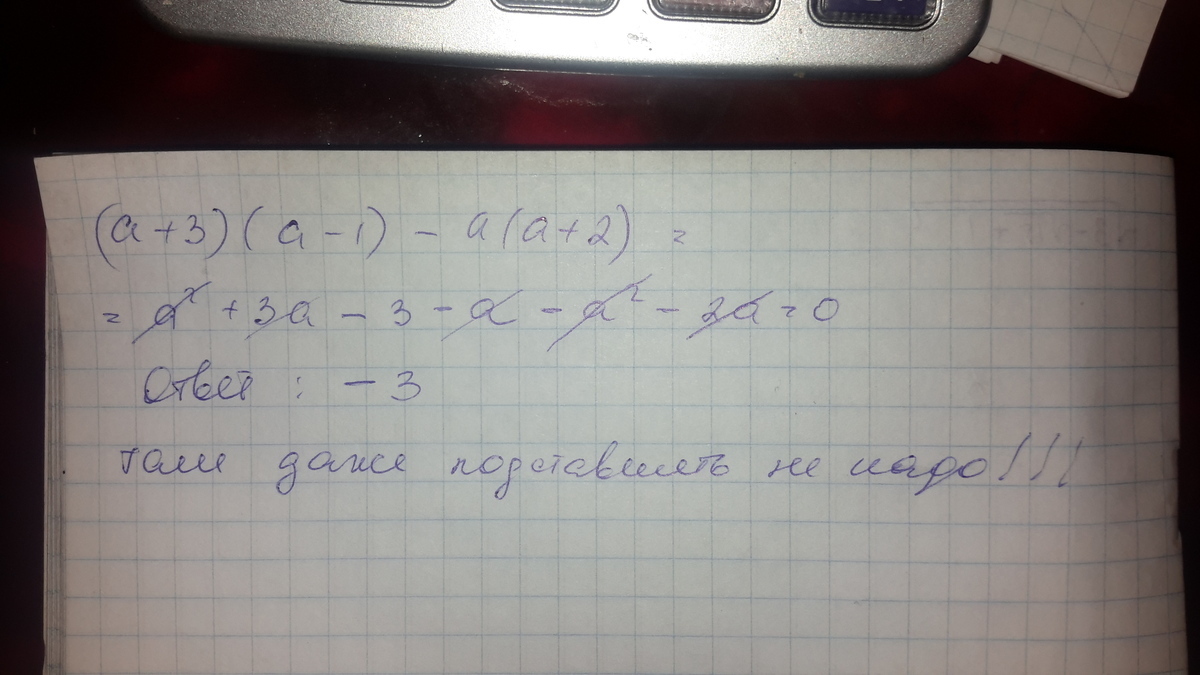 (a+3)(a-1) - a(a+2) =
= a² + 3a - 3 - a - a² - 2a = 0
Ответ : - 3
там даже подставлять не надо!!!